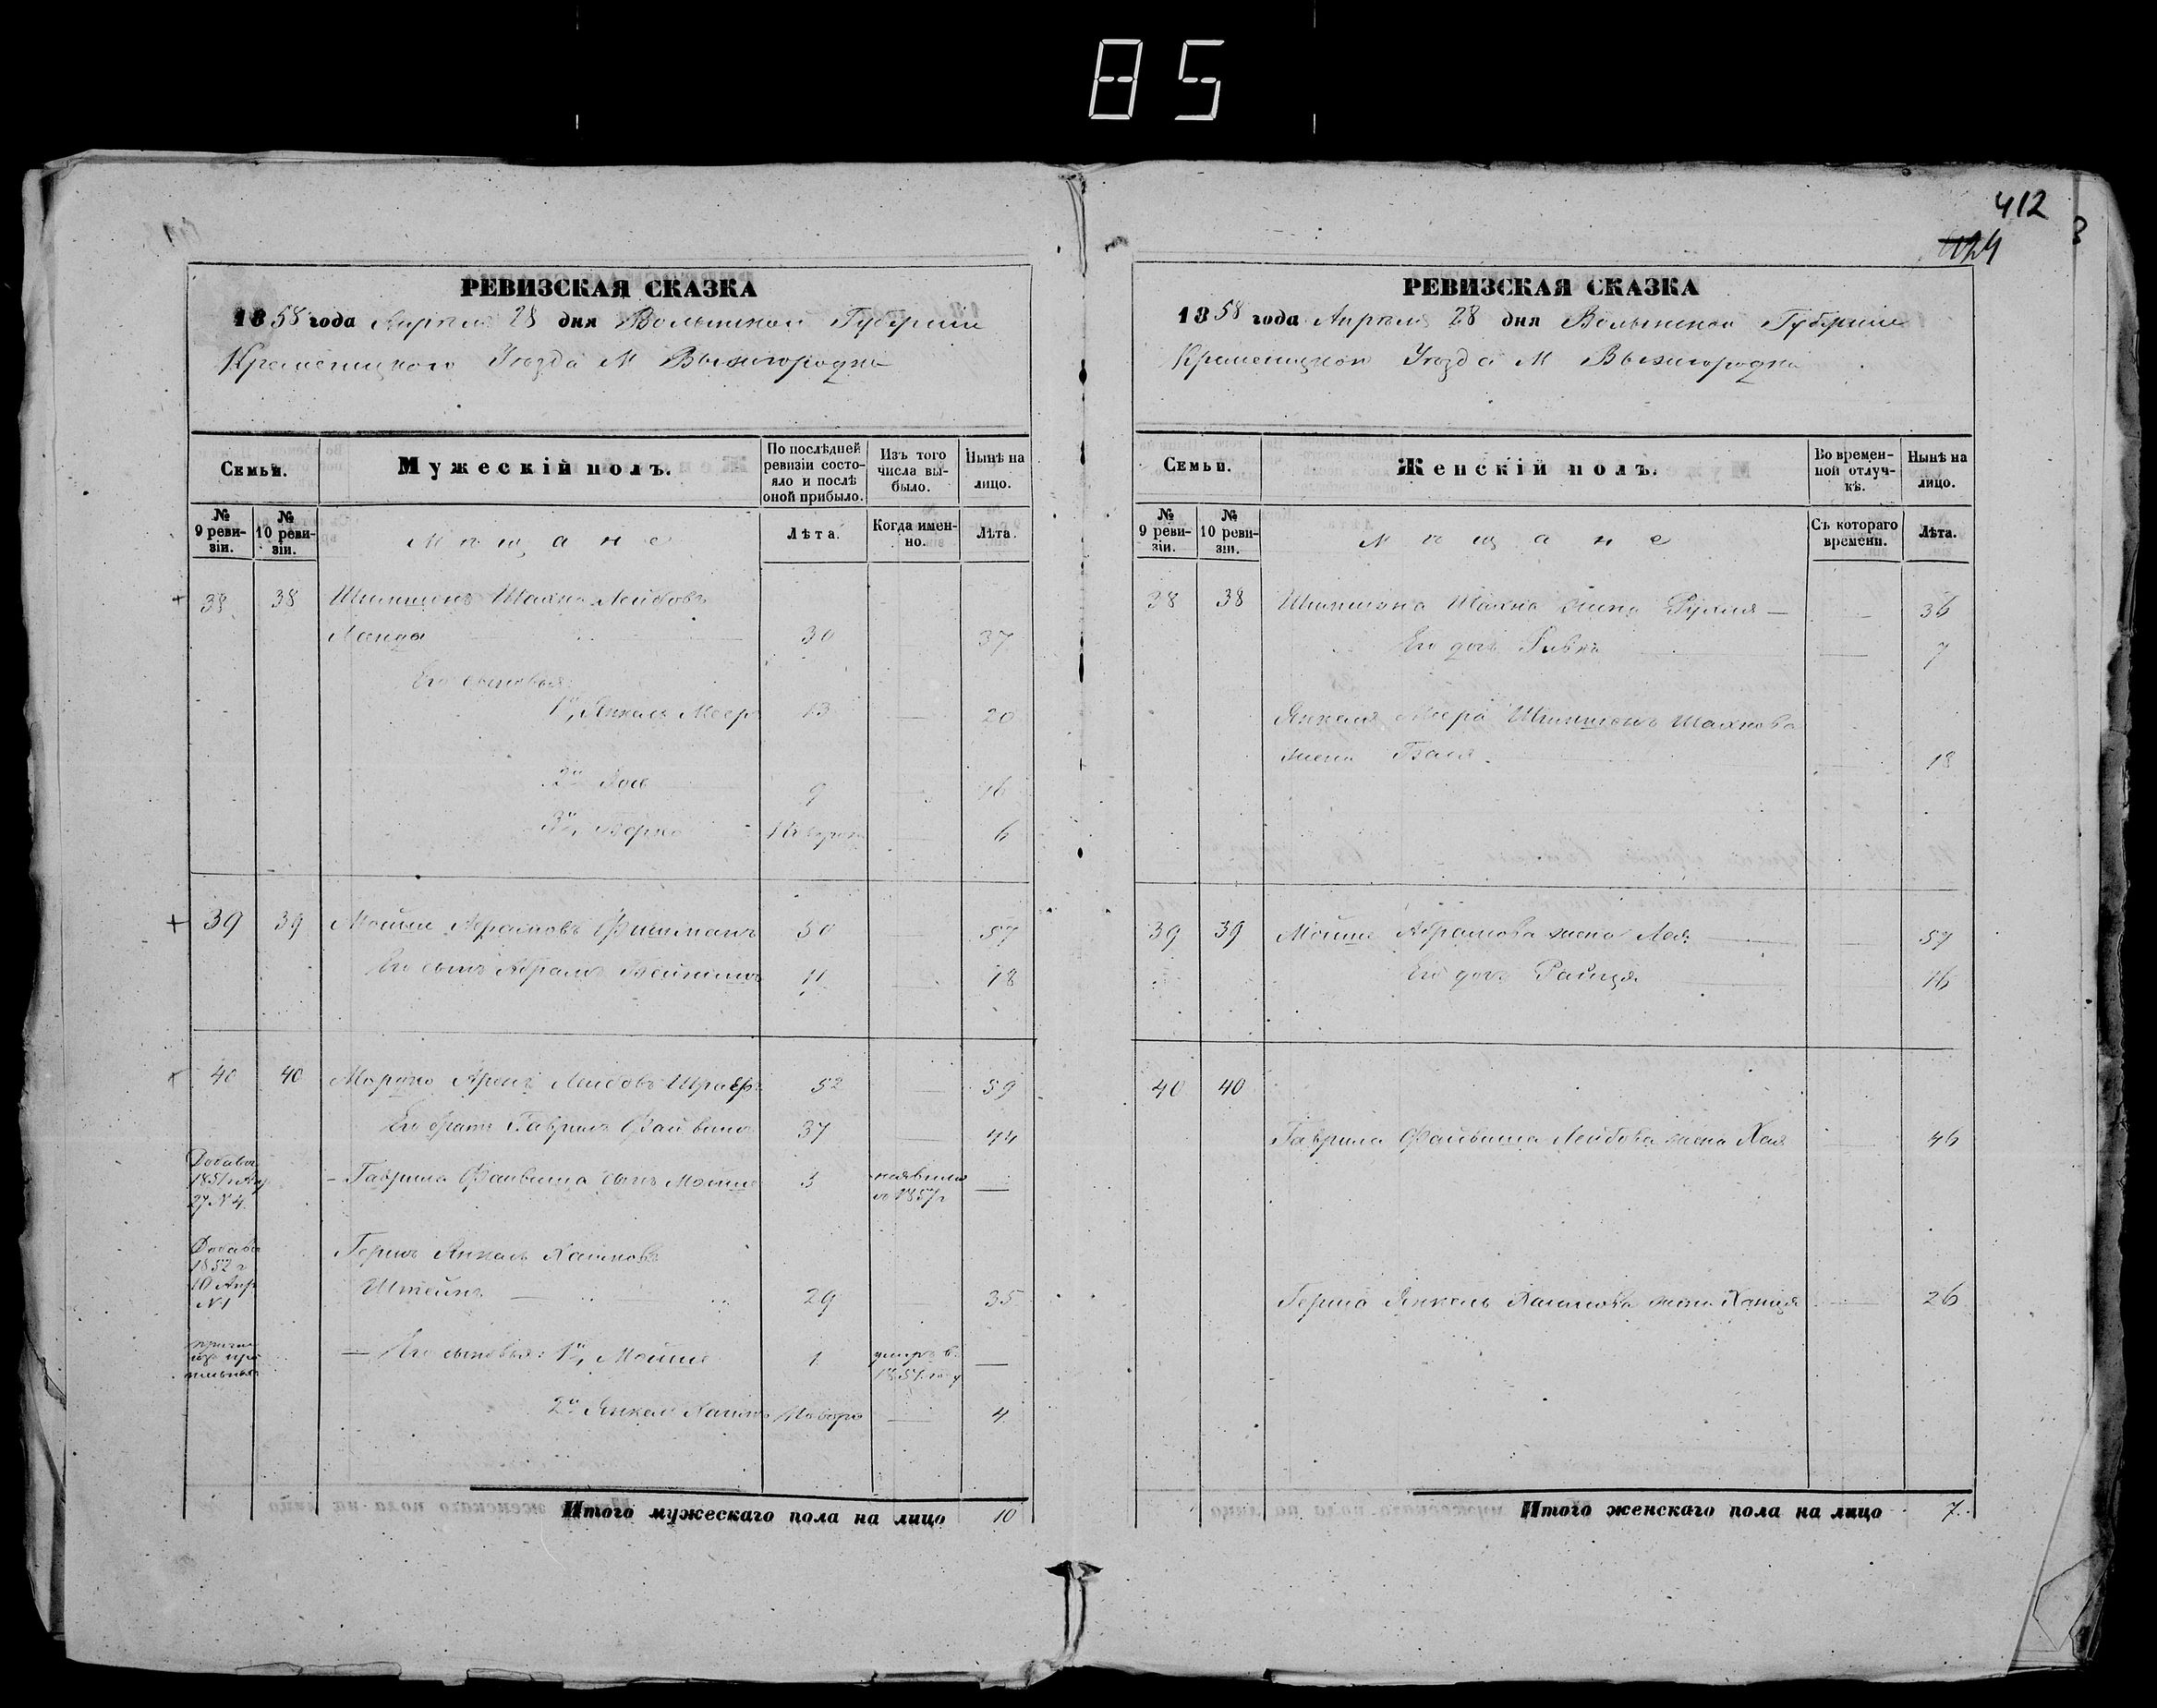 85
412
424
РЕВИЗСКАЯ СКАЗКА
1858 года Апрѣля 28 дня Волынской Губерніи
Кременецкого Уѣзда М Вышгородка
Семьи.
Мужескій полъ.
По послѣдней ревизіи состояло и послѣ оной прибыло.
Изъ того числа выбыло.
Нынѣ на лицо.
№ 9 ревизіи.
№ 10 ревизіи.
Мѣщане
Лѣта.
Когда именно.
Лѣта.
38 38 Шахна Лейбовъ
Ланда 30 37
Его сыновья:
1й, Янкель Мееръ 13 20
2й 9 16
3й, Берко 6
39 39 Мойше Абрамовъ Фишманъ 50 57
Его сынъ Абрамъ 11 18
40 40 Аронъ Лейбовъ 52 59
Его братъ Гаврилъ Файвишъ 37 44
Добавоч
1851 г
27 № 4
Гаврила Файвиша сынъ Мойше 3 неявился
1857 г —
Добавоч
1852 г
10 Апр
№ 1
Гершъ Янкель Хаимовъ
Штейнъ 29 35
Его сыновья: 1й, Мойше 1 умеръ въ
—
2й Янкель Хаимъ Новоро 4
Итого мужескаго пола на лицо 10
РЕВИЗСКАЯ СКАЗКА
1858 года Апрѣля 28 дня Волынской Губерніи
Кременецкого Уѣзда М Вышгородка
Семьи.
Женскій полъ.
Во временной отлучкѣ.
Нынѣ на лицо.
№ 9 ревизіи.
№ 10 ревизіи.
Мѣщане
Съ котораго времени.
Лѣта.
38 38 Шахна жена Рухля — 36
Его дочь Ривка 7
Янкеля Меера Шахнова
жена Бася 18
39 39 Мойше Абрамова жена Лея 57
Его дочь Райця 16
40 40
Гаврила Файвиша Лейбова жена Хая 46
Герша Янкель Хаимова жена 26
Итого женскаго пола на лицо 7